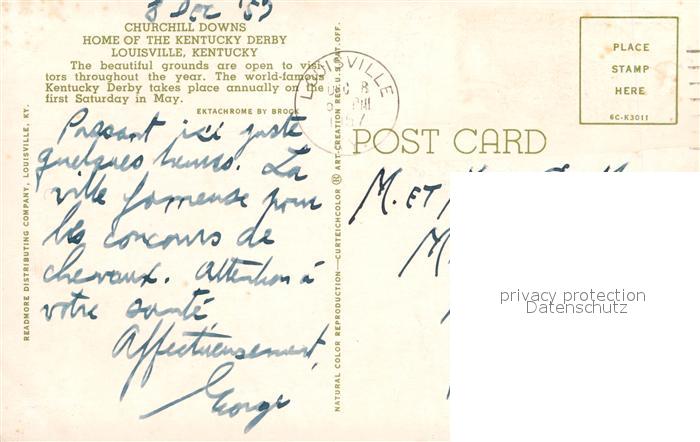 8 Dec '57
CHURCHILL DOWNS
HOME OF THE KENTUCKY DERBY
LOUISVILLE, KENTUCKY
The beautiful grounds are open to visi-
tors throughout the year. The world-famous
Kentucky Derby takes place annually on the
first Saturday in May.
EKTACHROME BY BROOK
Passant ici juste
quelques heures. La
ville fameuse pour
les concours de
chevaux. Attention à
votre santé
Affectueusement,
George
READMORE DISTRIBUTING COMPANY, LOUISVILLE, KY.
NATURAL COLOR REPRODUCTION—CURTEICHCOLOR ® ART-CREATION REG. U.S. PAT. OFF.
LOUISVILLE
DEC 8
PLACE
STAMP
HERE
6C-K3011
POST CARD
M. ET
privacy protection
Datenschutz